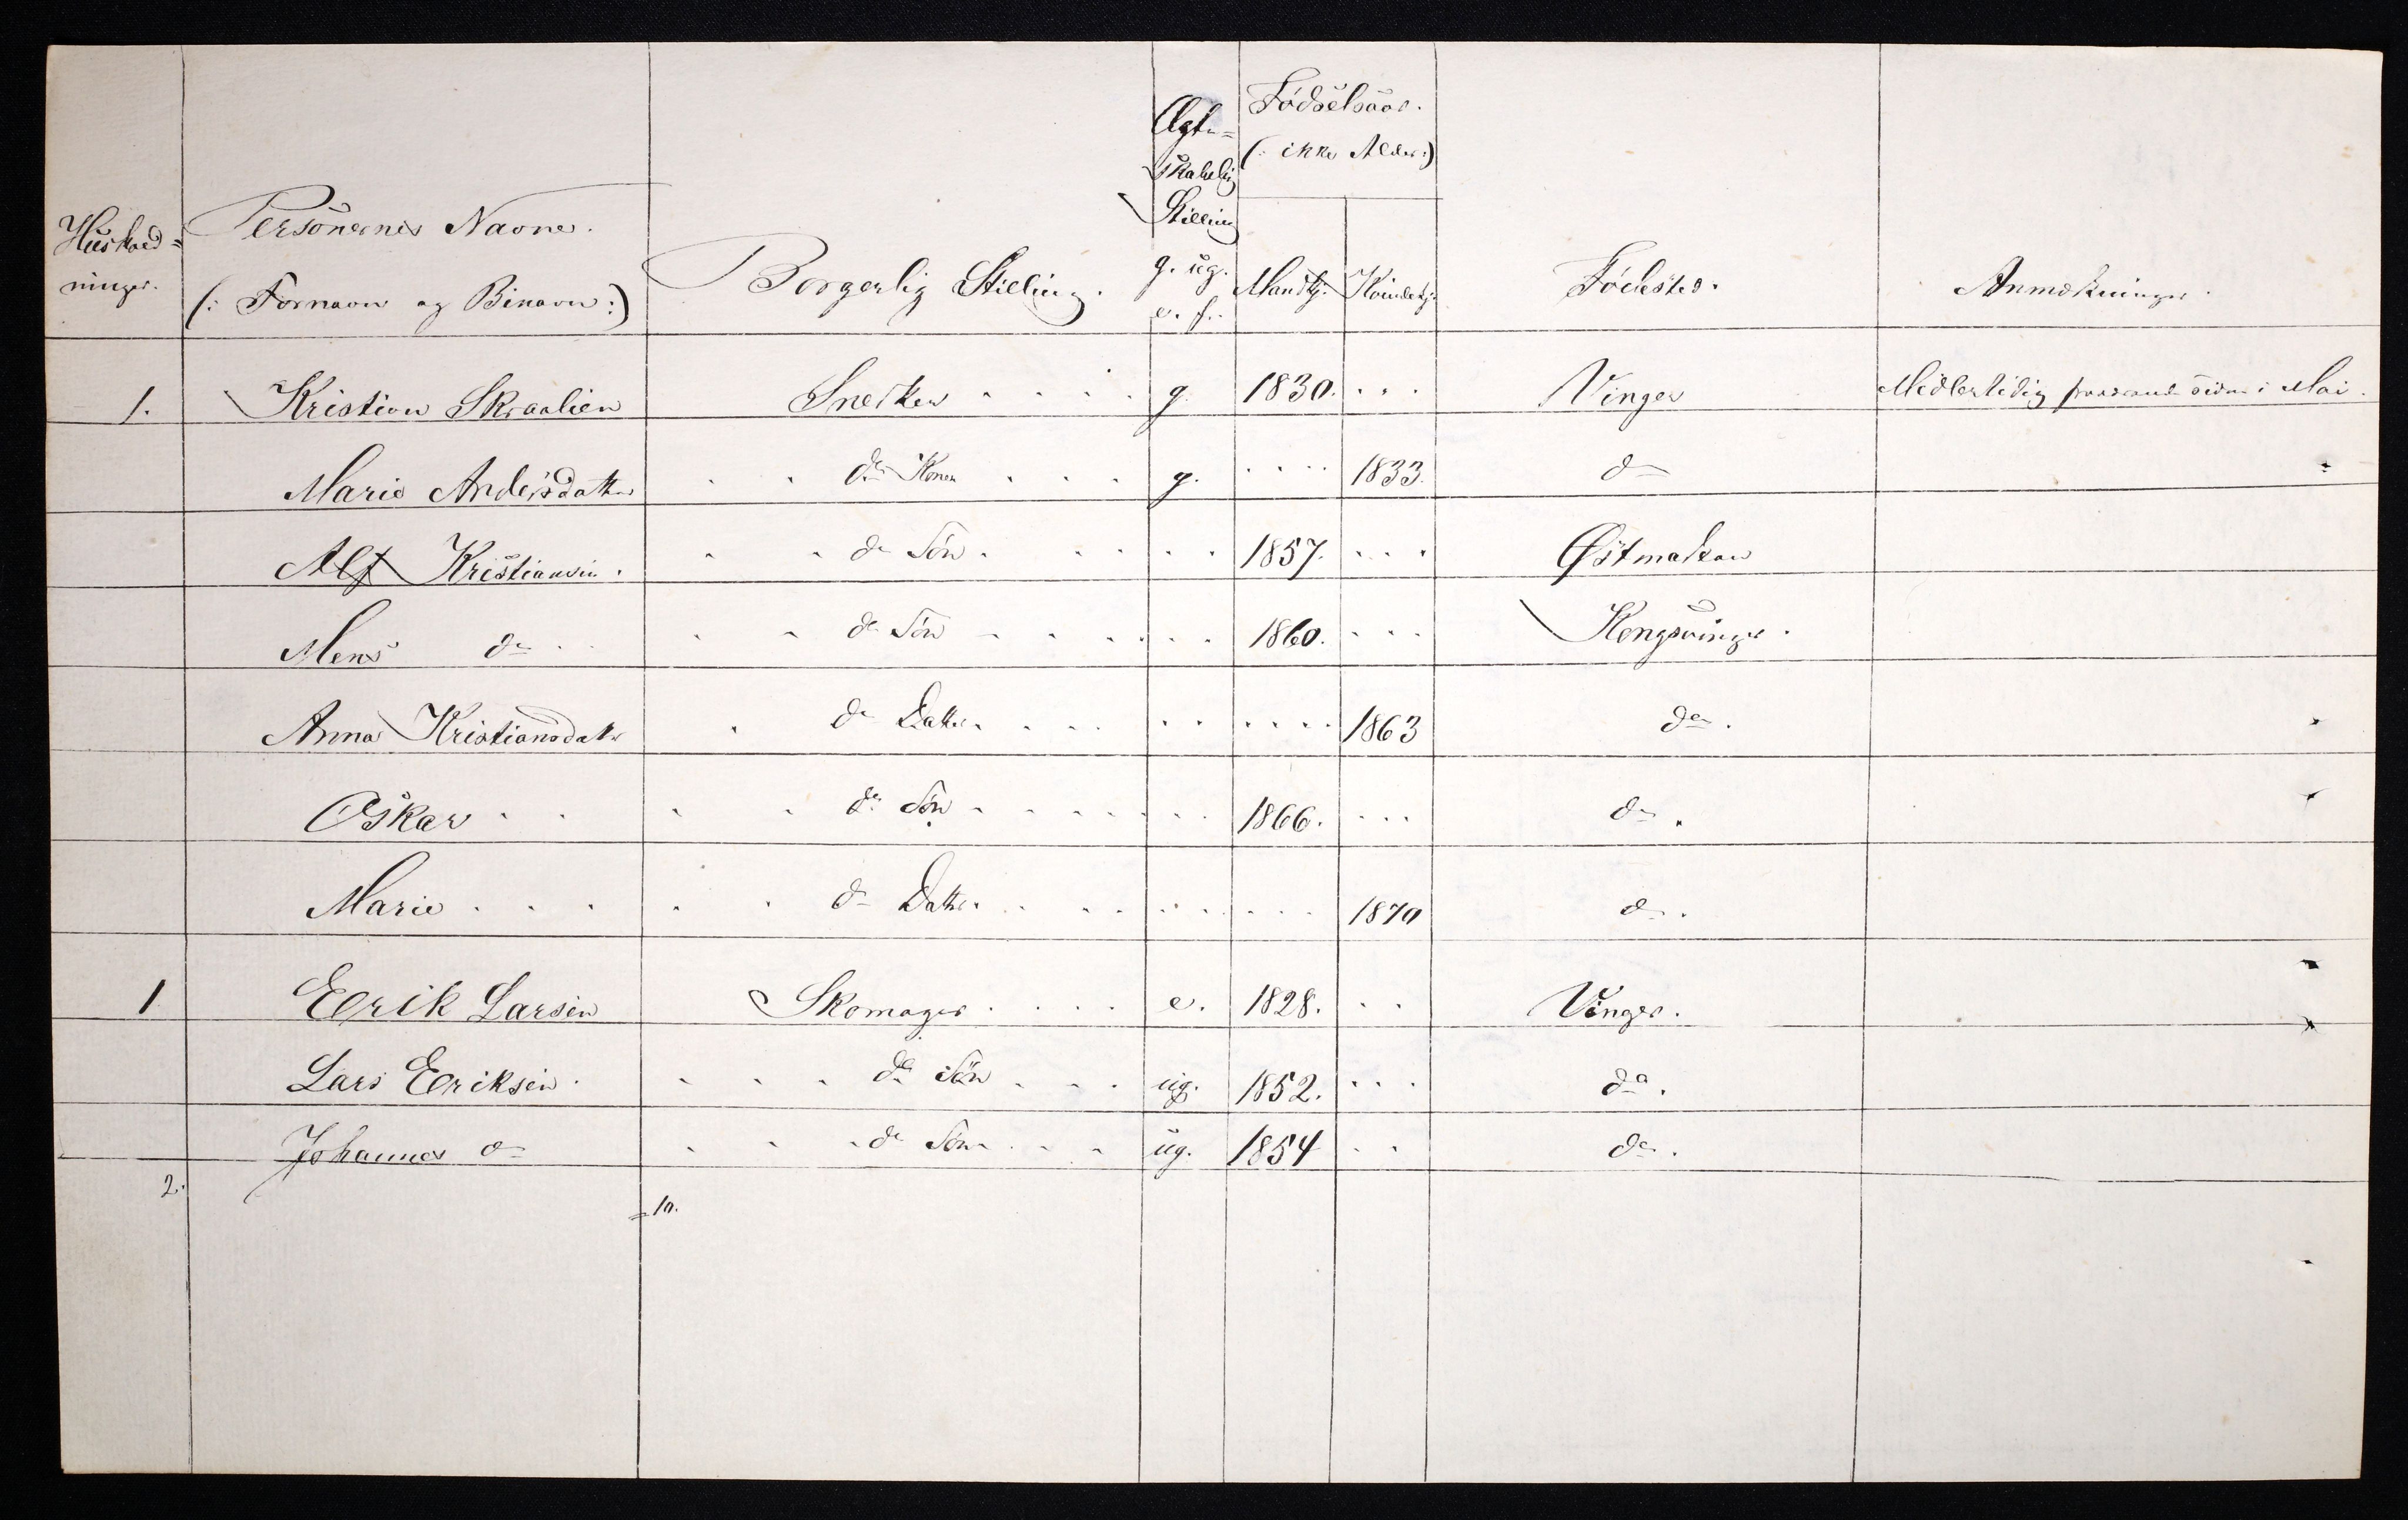 Huushold=
ninger.
Personernes Navne.
(: Fornavn og Binavn :)
Borgerlig Stilling.
Ægte=
skabelig
Stilling
g. ug.
e. f.
Fødselsaar.
(: ikke Alder :)
Mandkj. Kvindekj.
Fødested.
Anmærkninger.
1. Kristian Skraalien Snedker . . . . g. 1830. . . . Vinger Midlertidig fraværende siden i Mai.
Marie Andersdatter . . do Kone . . . g. . . . . 1833. do
Alf Kristiansen. . . do Søn. . . . . . 1857. . . . Østmarken
Mens do . . . . do Søn . . . . . . 1860. . . . Kongsvinger.
Anna Kristiansdatter . do Datter. . . . . . . . . . 1863 do.
Oskar . . . . do Søn . . . . . . 1866. . . . do.
Marie . . . . . do Datter. . . . . . . . . 1870 do.
1 Eerik Larsen Skomager . . . . e. 1828. . . Vinger.
Lars Eeriksen. . . . do Søn . . . ug. 1852. . . . do.
Johannes do . . . do Søn . . . ug. 1854 . . do.
2. = 10.